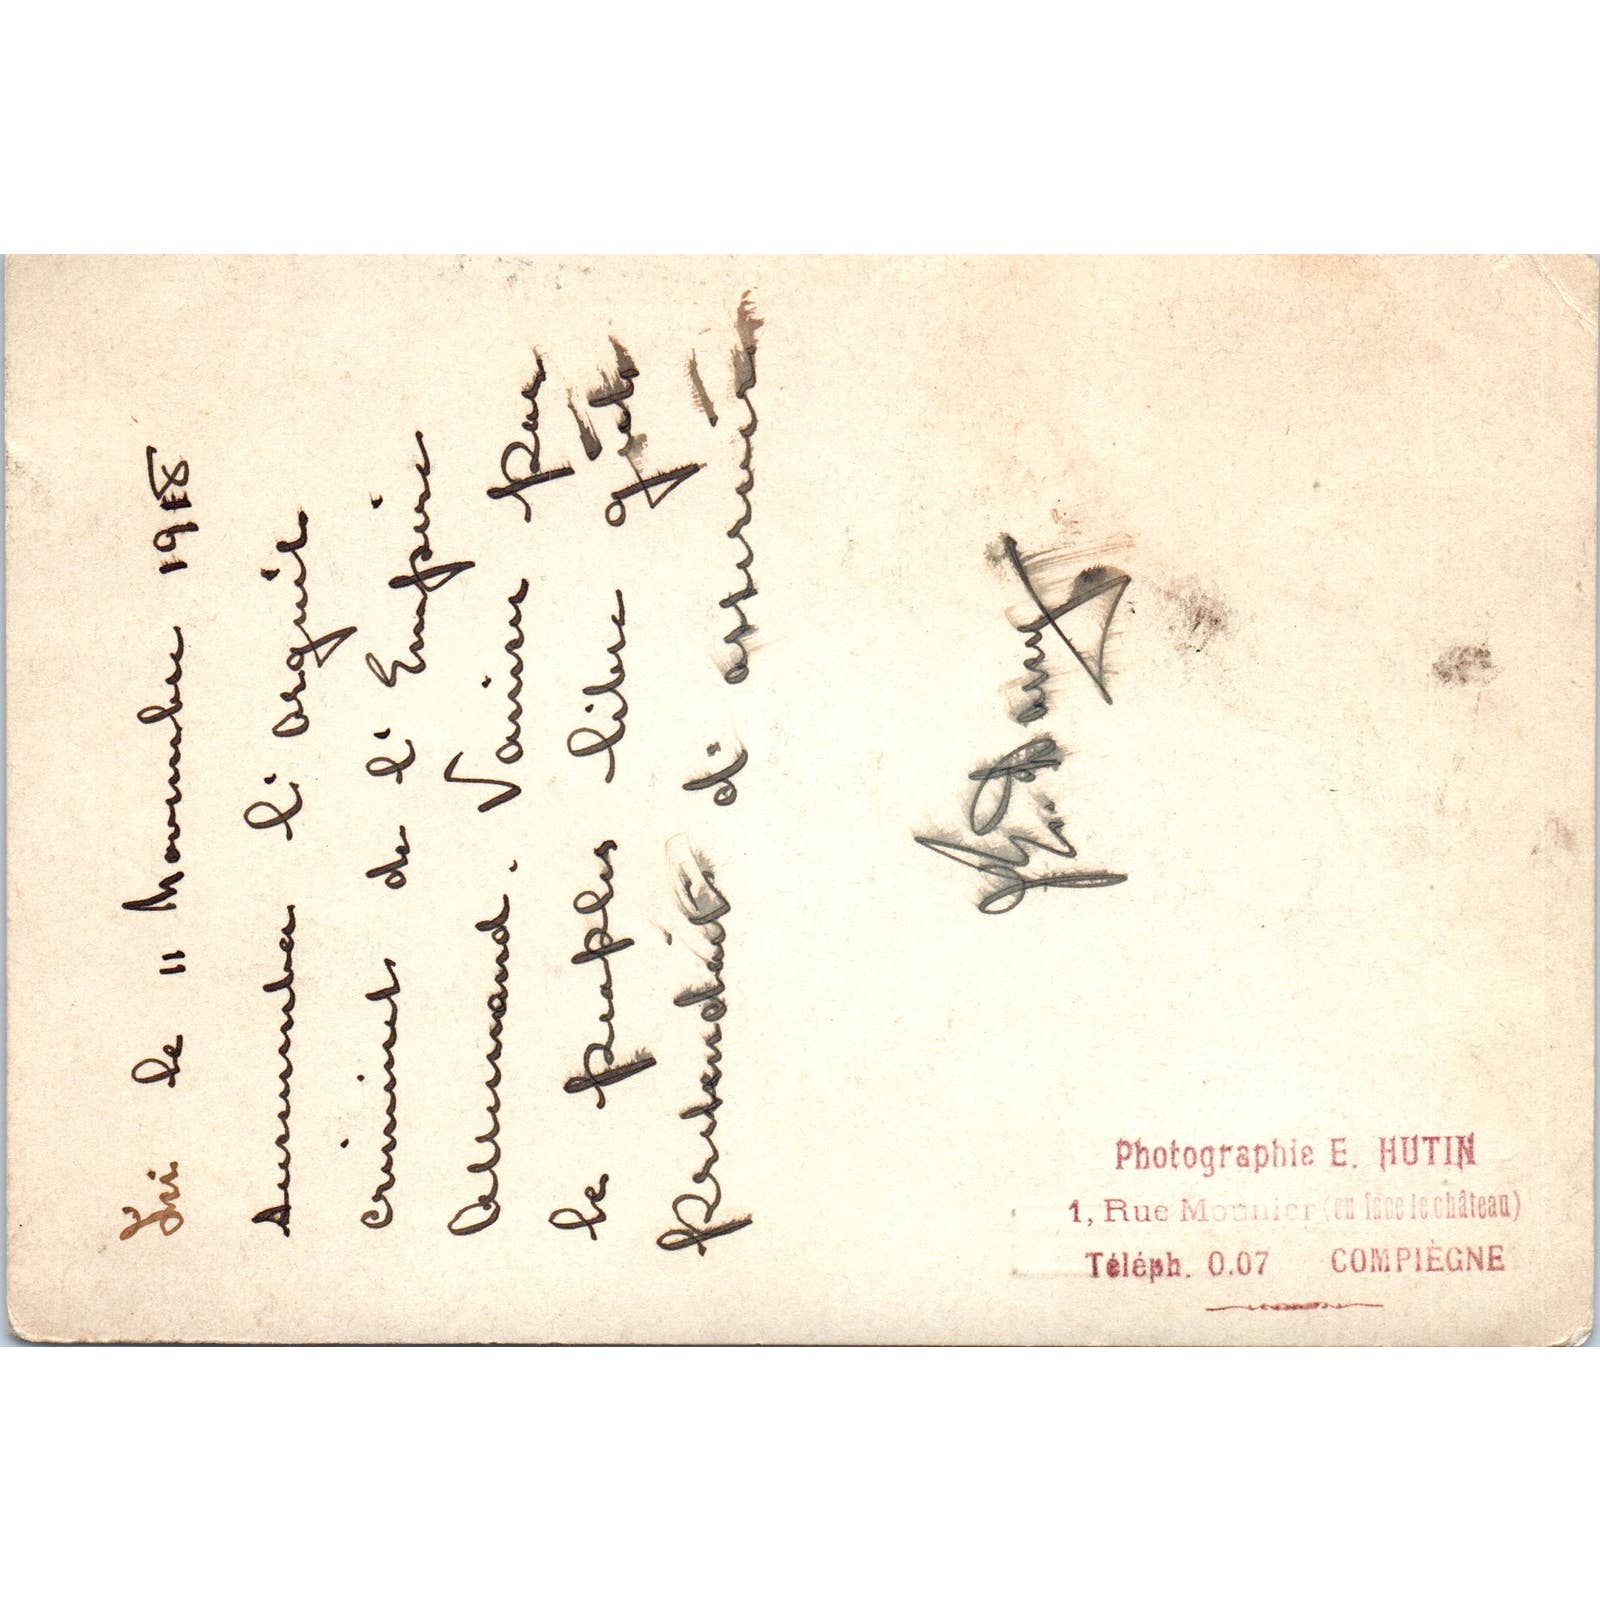 Ici le 11 Novembre 1918
Succomba l'orgueil
criminel de l'Empire
Allemand. Vaincu par
les peuples libre qu'il
prétendait d'asservir
Photographie E. HUTIN
1, Rue Mounier (en face le château)
Téléph. 0.07 COMPIÈGNE